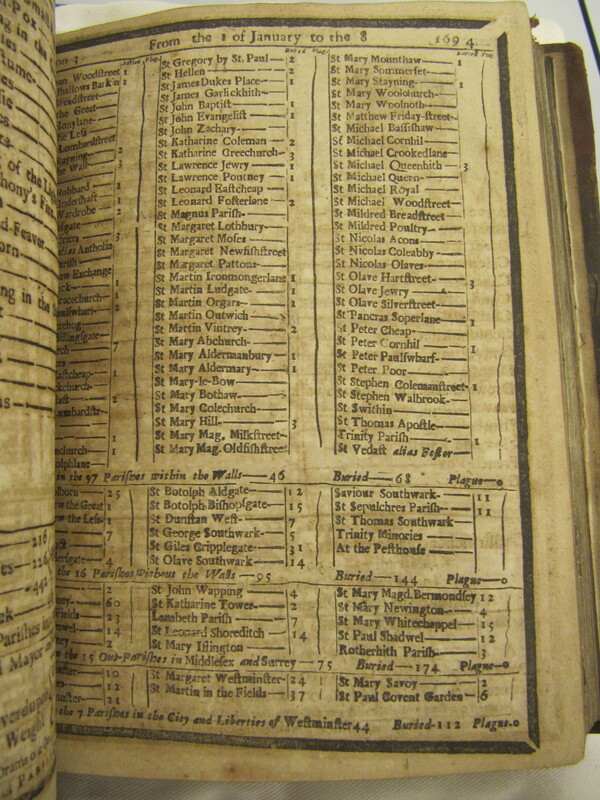 From the 1 of January to the 8 1694
Buried Plag. Buried Plag. Buried Plag.
Woodstreet 1
Bark'n 1
Breadstreet
the Great
Honylane
the Less
Lombardstreet
Stayning 2
the Wall 3
Hubbard 1
Undershaft 1
Wardrobe 2
3
alias Antholin
Parish
Exchange
1
Gracechurch 1
Paulswharf 2
Billingsgate
7
Eastcheap 1
2
Lombardstr-
1
St Gregory by St. Paul 2
St Hellen 2
St James Dukes Place 1
St James Garlickhith
St John Baptist 1
St John Evangelist 1
St John Zachary
St Katharine Coleman 2
St Katharine Greechurch 3
St Lawrence Jewry 1
St Lawrence Pountney 1
St Leonard Eastcheap
St Leonard Fosterlane 2
St Magnus Parish
St Margaret Lothbury
St Margaret Moses
St Margaret Newfishstreet
St Margaret Pattons
St Martin Ironmongerlane 1
St Martin Ludgate 1
St Martin Orgars 1
St Martin Outwich
St Martin Vintrey 2
St Mary Abchurch
St Mary Aldermanbury 1
St Mary Aldermary 1
St Mary-le-Bow
St Mary Bothaw
St Mary Colechurch
St Mary Hill 3
St Mary Mag. Milkstreet
St Mary Mag. Oldfishstreet
St Mary Mounthaw 1
St Mary Sommerset
St Mary Stayning 1
St Mary Woolchurch
St Mary Woolnoth
St Matthew Friday-street
St Michael Bassishaw
St Michael Cornhil
St Michael Crookedlane
St Michael Queenhith 3
St Michael Quern
St Michael Royal
St Michael Woodstreet
St Mildred Breadstreet
St Mildred Poultry
St Nicolas Acons
St Nicolas Coleabby
St Nicolas Olaves
St Olave Hartstreet 3
St Olave Jewry
St Olave Silverstreet
St Pancras Soperlane 1
St Peter Cheap
St Peter Cornhil 1
St Peter Paulswharf
St Peter Poor
St Stephen Colemanstreet 1
St Stephen Walbrook
St Swithin
St Thomas Apostle
Trinity Parish 1
St Vedast alias Foster
in the 97 Parishes within the Walls 46 Buried 68 Plague 0
25
the Great 1
the Less 1
7
4
St Botolph Aldgate 12
St Botolph Bishopsgate 15
St Dunstan West 7
St George Southwark 5
St Giles Cripplegate 31
St Olave Southwark 14
Saviour Southwark 11
St Sepulchres Parish 11
St Thomas Southwark
Trinity Minories
At the Pesthouse
the 16 Parishes without the Walls 95 Buried 144 Plague 0
2
60
Fields 23
14
2
St John Wapping 4
St Katharine Tower 2
Lambeth Parish 7
St Leonard Shoreditch 14
St Mary Islington
St Mary Magd. Bermondsey 12
St Mary Newington 4
St Mary Whitechappel 15
St Paul Shadwel 12
Rotherhith Parish 3
the 15 Out-Parishes in Middlesex and Surrey 75 Buried 174 Plague 0
10
12
21
St Margaret Westminster 24
St Martin in the Fields 37
St Mary Savoy 2
St Paul Covent Garden 6
the 7 Parishes in the City and Liberties of Westminster 44 Buried 112 Plague 0